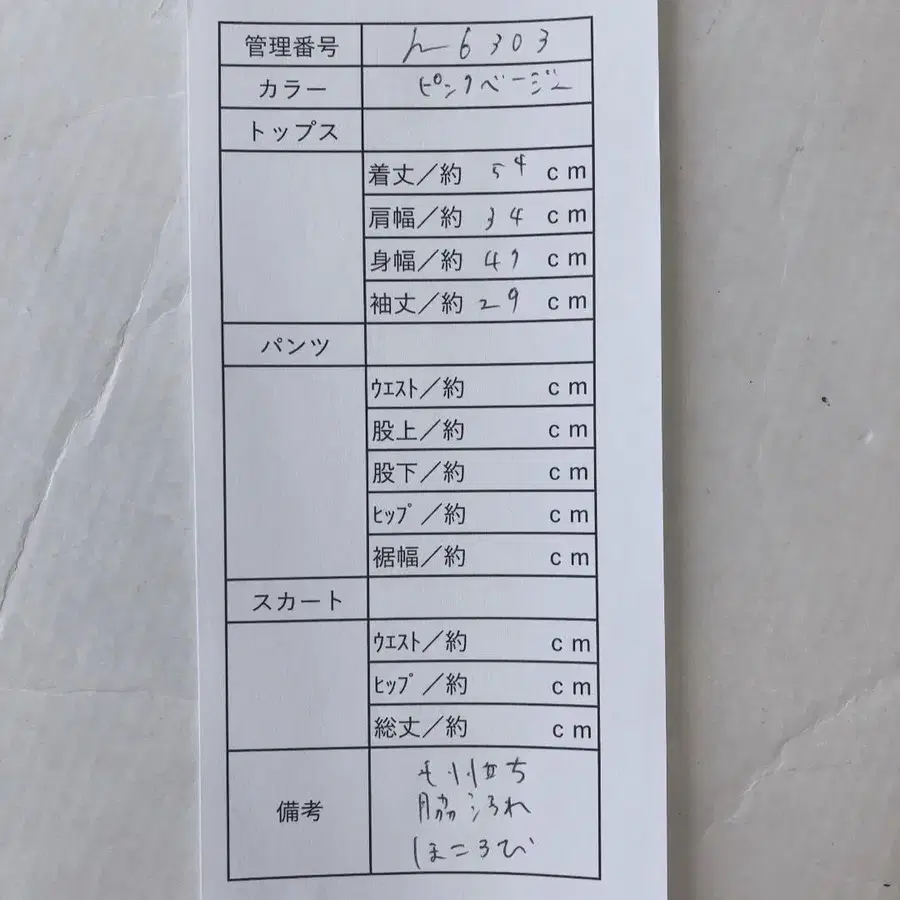 管理番号 h6303
カラー ピンクベージュ
トップス
着丈／約 54 cm
肩幅／約 34 cm
身幅／約 47 cm
袖丈／約 29 cm
パンツ
ｳｴｽﾄ／約 cm
股上／約 cm
股下／約 cm
ﾋｯﾌﾟ／約 cm
裾幅／約 cm
スカート
ｳｴｽﾄ／約 cm
ﾋｯﾌﾟ／約 cm
総丈／約 cm
備考
毛羽立ち
脇汚れ
ほころび